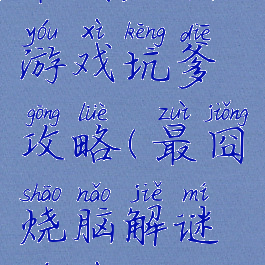 yóu xì kēng diē
游戏坑爹
gōng lüè zuì jiǒng
攻略(最囧
shāo nǎo jiě mí
烧脑解谜